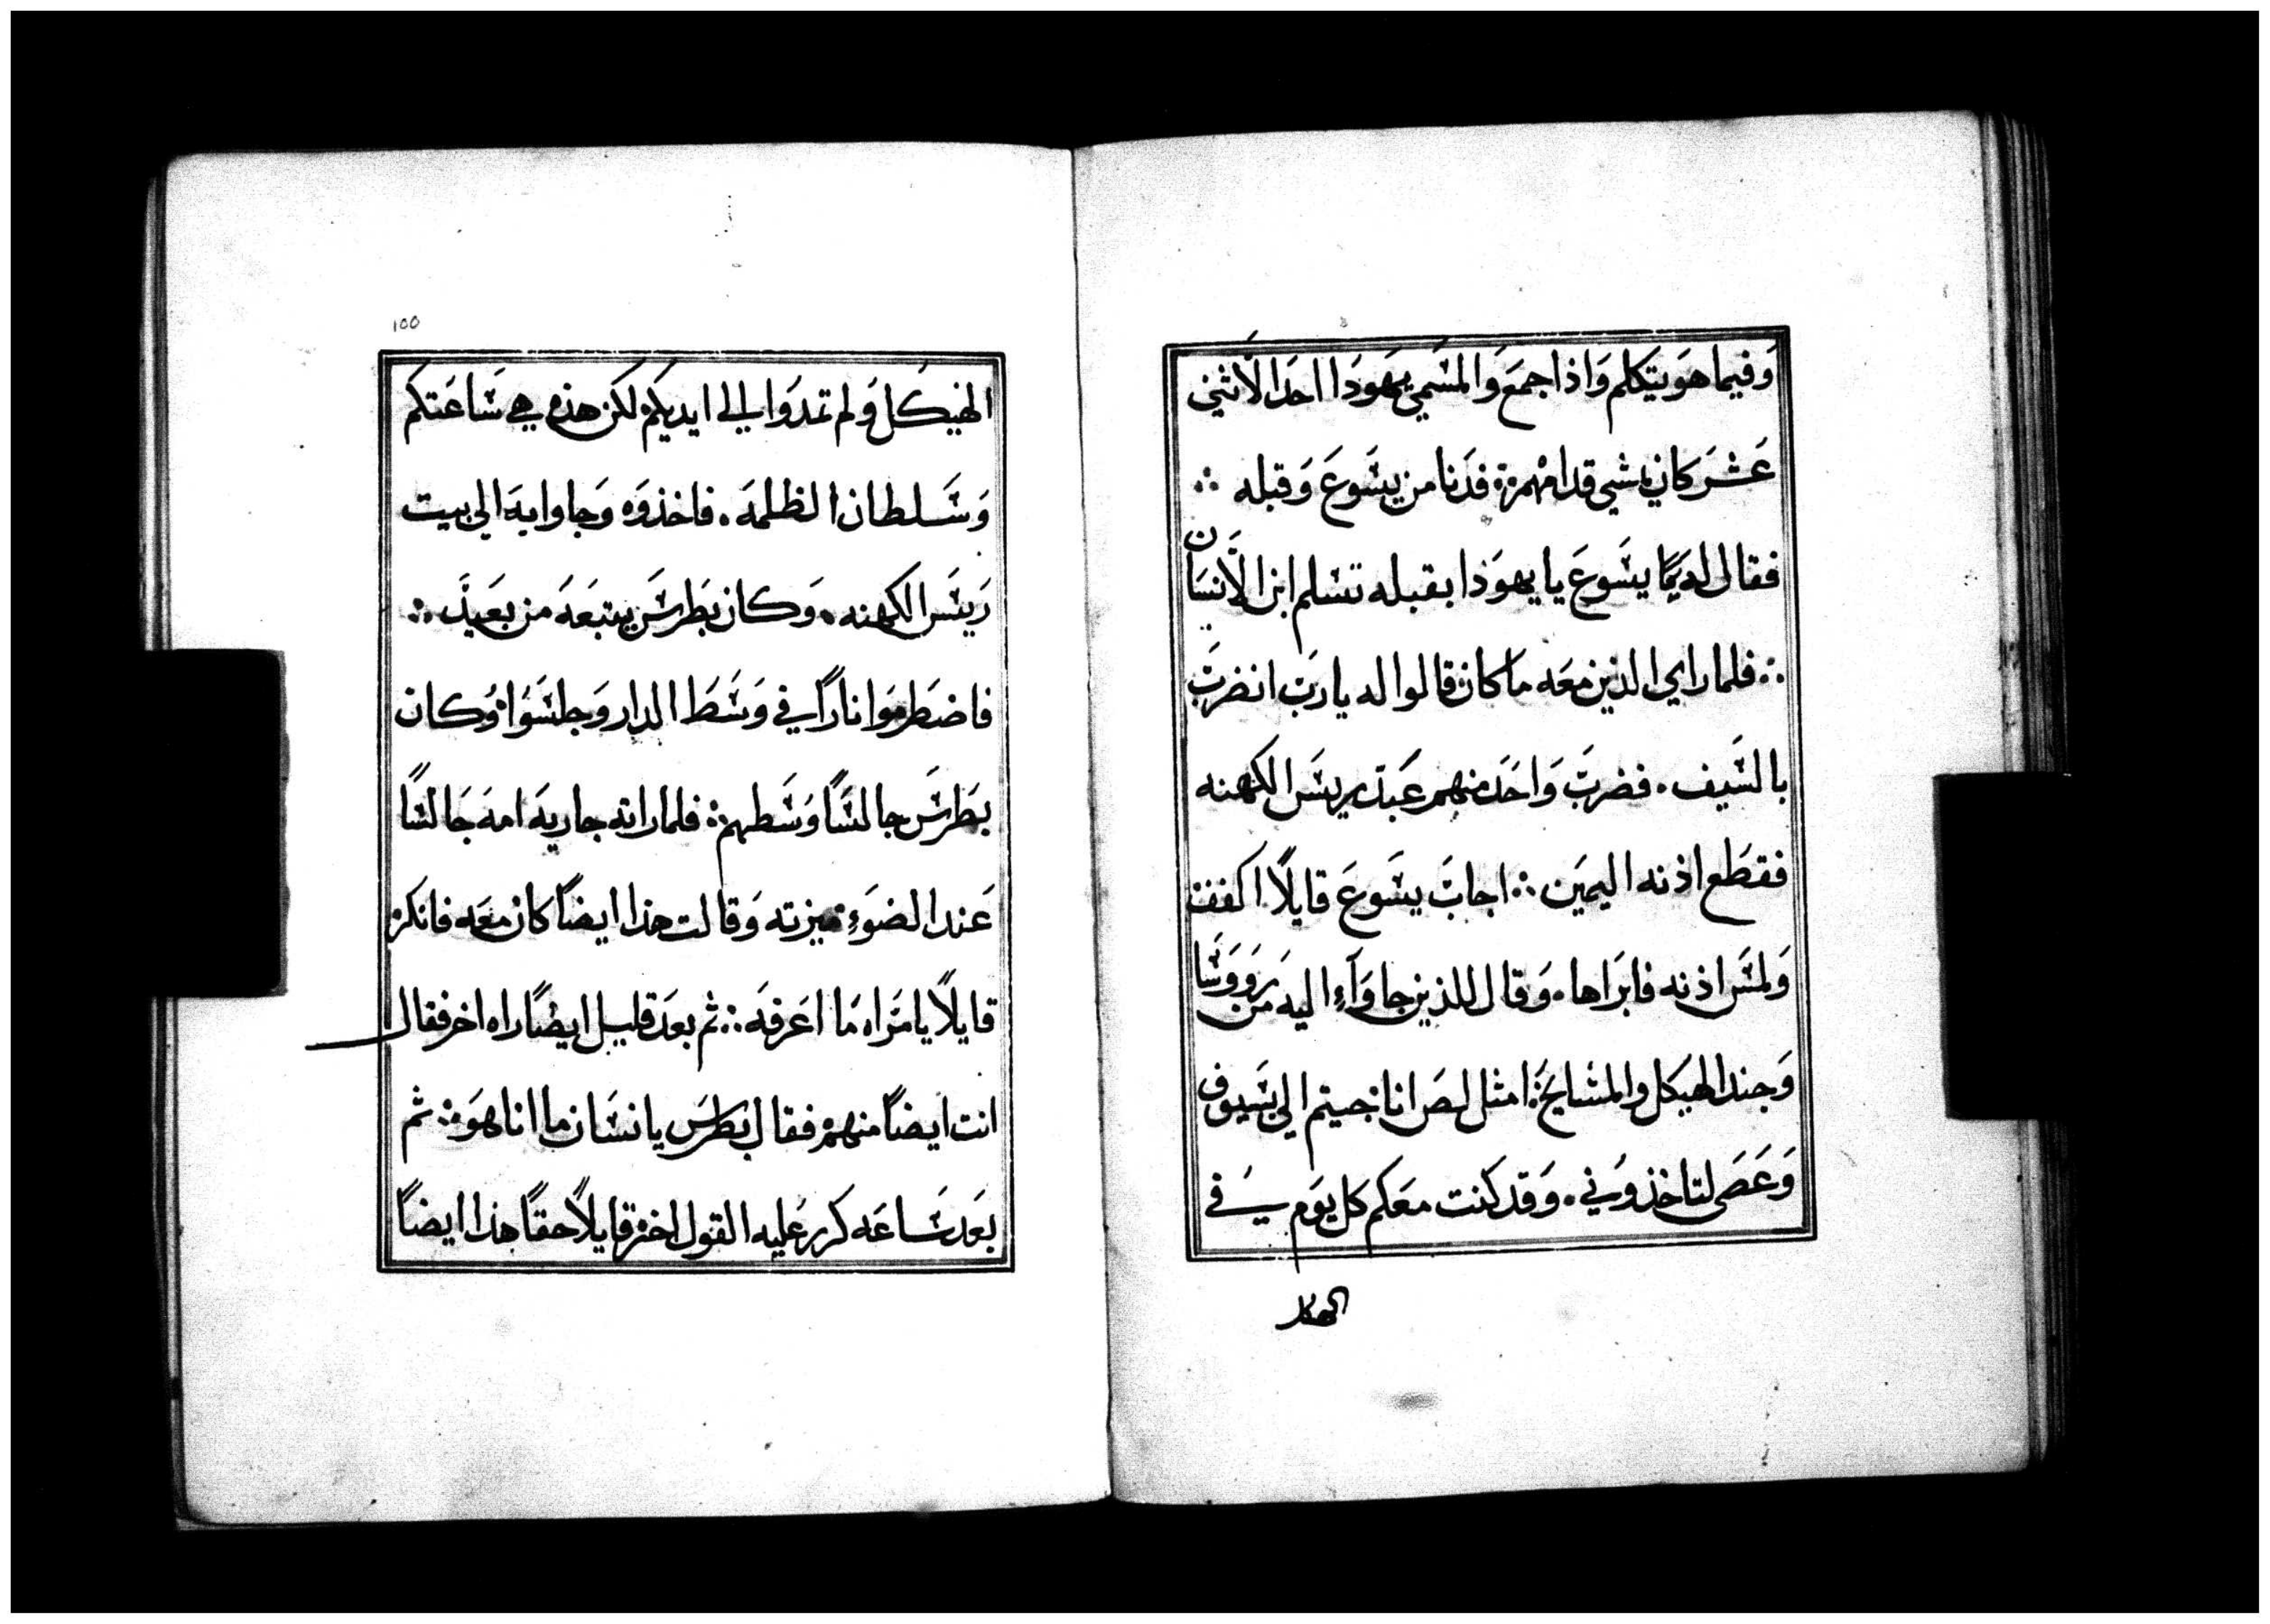 وَفيما هوَ يتكلم وَاذا جمعَ وَالمسَمي يهَوذا احَد الاثني
عَشرَ كان يمشي قدامهم ∴ فدَنا من يسَوعَ وَقبله ∴
فقال له يسَوعَ يا يهوَذا بقبله تسَلم ابن الانسَان
∴ فلما راي الذين معَه مَا كان قالوا له يا ربَ انضربَ
بالسَيف . فضربَ وَاحَد منهم عَبد ريسَ الكهنه
فقطَع اذنه اليمَين ∴ اجابَ يسَوعَ قايلاً اكفف
وَلمسَ اذنه فابرَاها . وَقال للذين جاوَاء اليه من رَووسَا
وَجند الهيَكل والمشايخ : امثل لصَ اناَ جيتم الي بسَيوف
وَعَصَى لتاخذوني . وَقد كنت معَكم كل يوَم في
الهيكل
١٥٥
الهيَكل وَلم تمدوَا الي ايديكم لكن هذه هي سَاعَتكم
وَسَلطان الظلمهَ . فاخذوَه وَجاوا بهَ الي بيت
رَيسَ الكهنه . وَكان بطَرسَ يتبعَهَ من بعَيد ∴
فاضطَرموَا ناراً في وَسَطَ الدار وَجلسَوا وَكان
بطَرسَ جالسَاً وَسَطهم : فلما راته جاريهَ امهَ جَالسَاً
عَند الضوَء ميزته وَقالت هذا ايضاً كان معَه فانكر
قايلاً يا امرَاه مَا اعَرفهَ ∴ ثم بعَد قليل ايضاً راه اخر فقال
انت ايضاً منهم فقال بطرسَ يا انسَان ما انا هوَ ∴ ثم
بعَد سَاعَه كرر عَليه القول اخر قايلاً حقاً هذا ايضاً